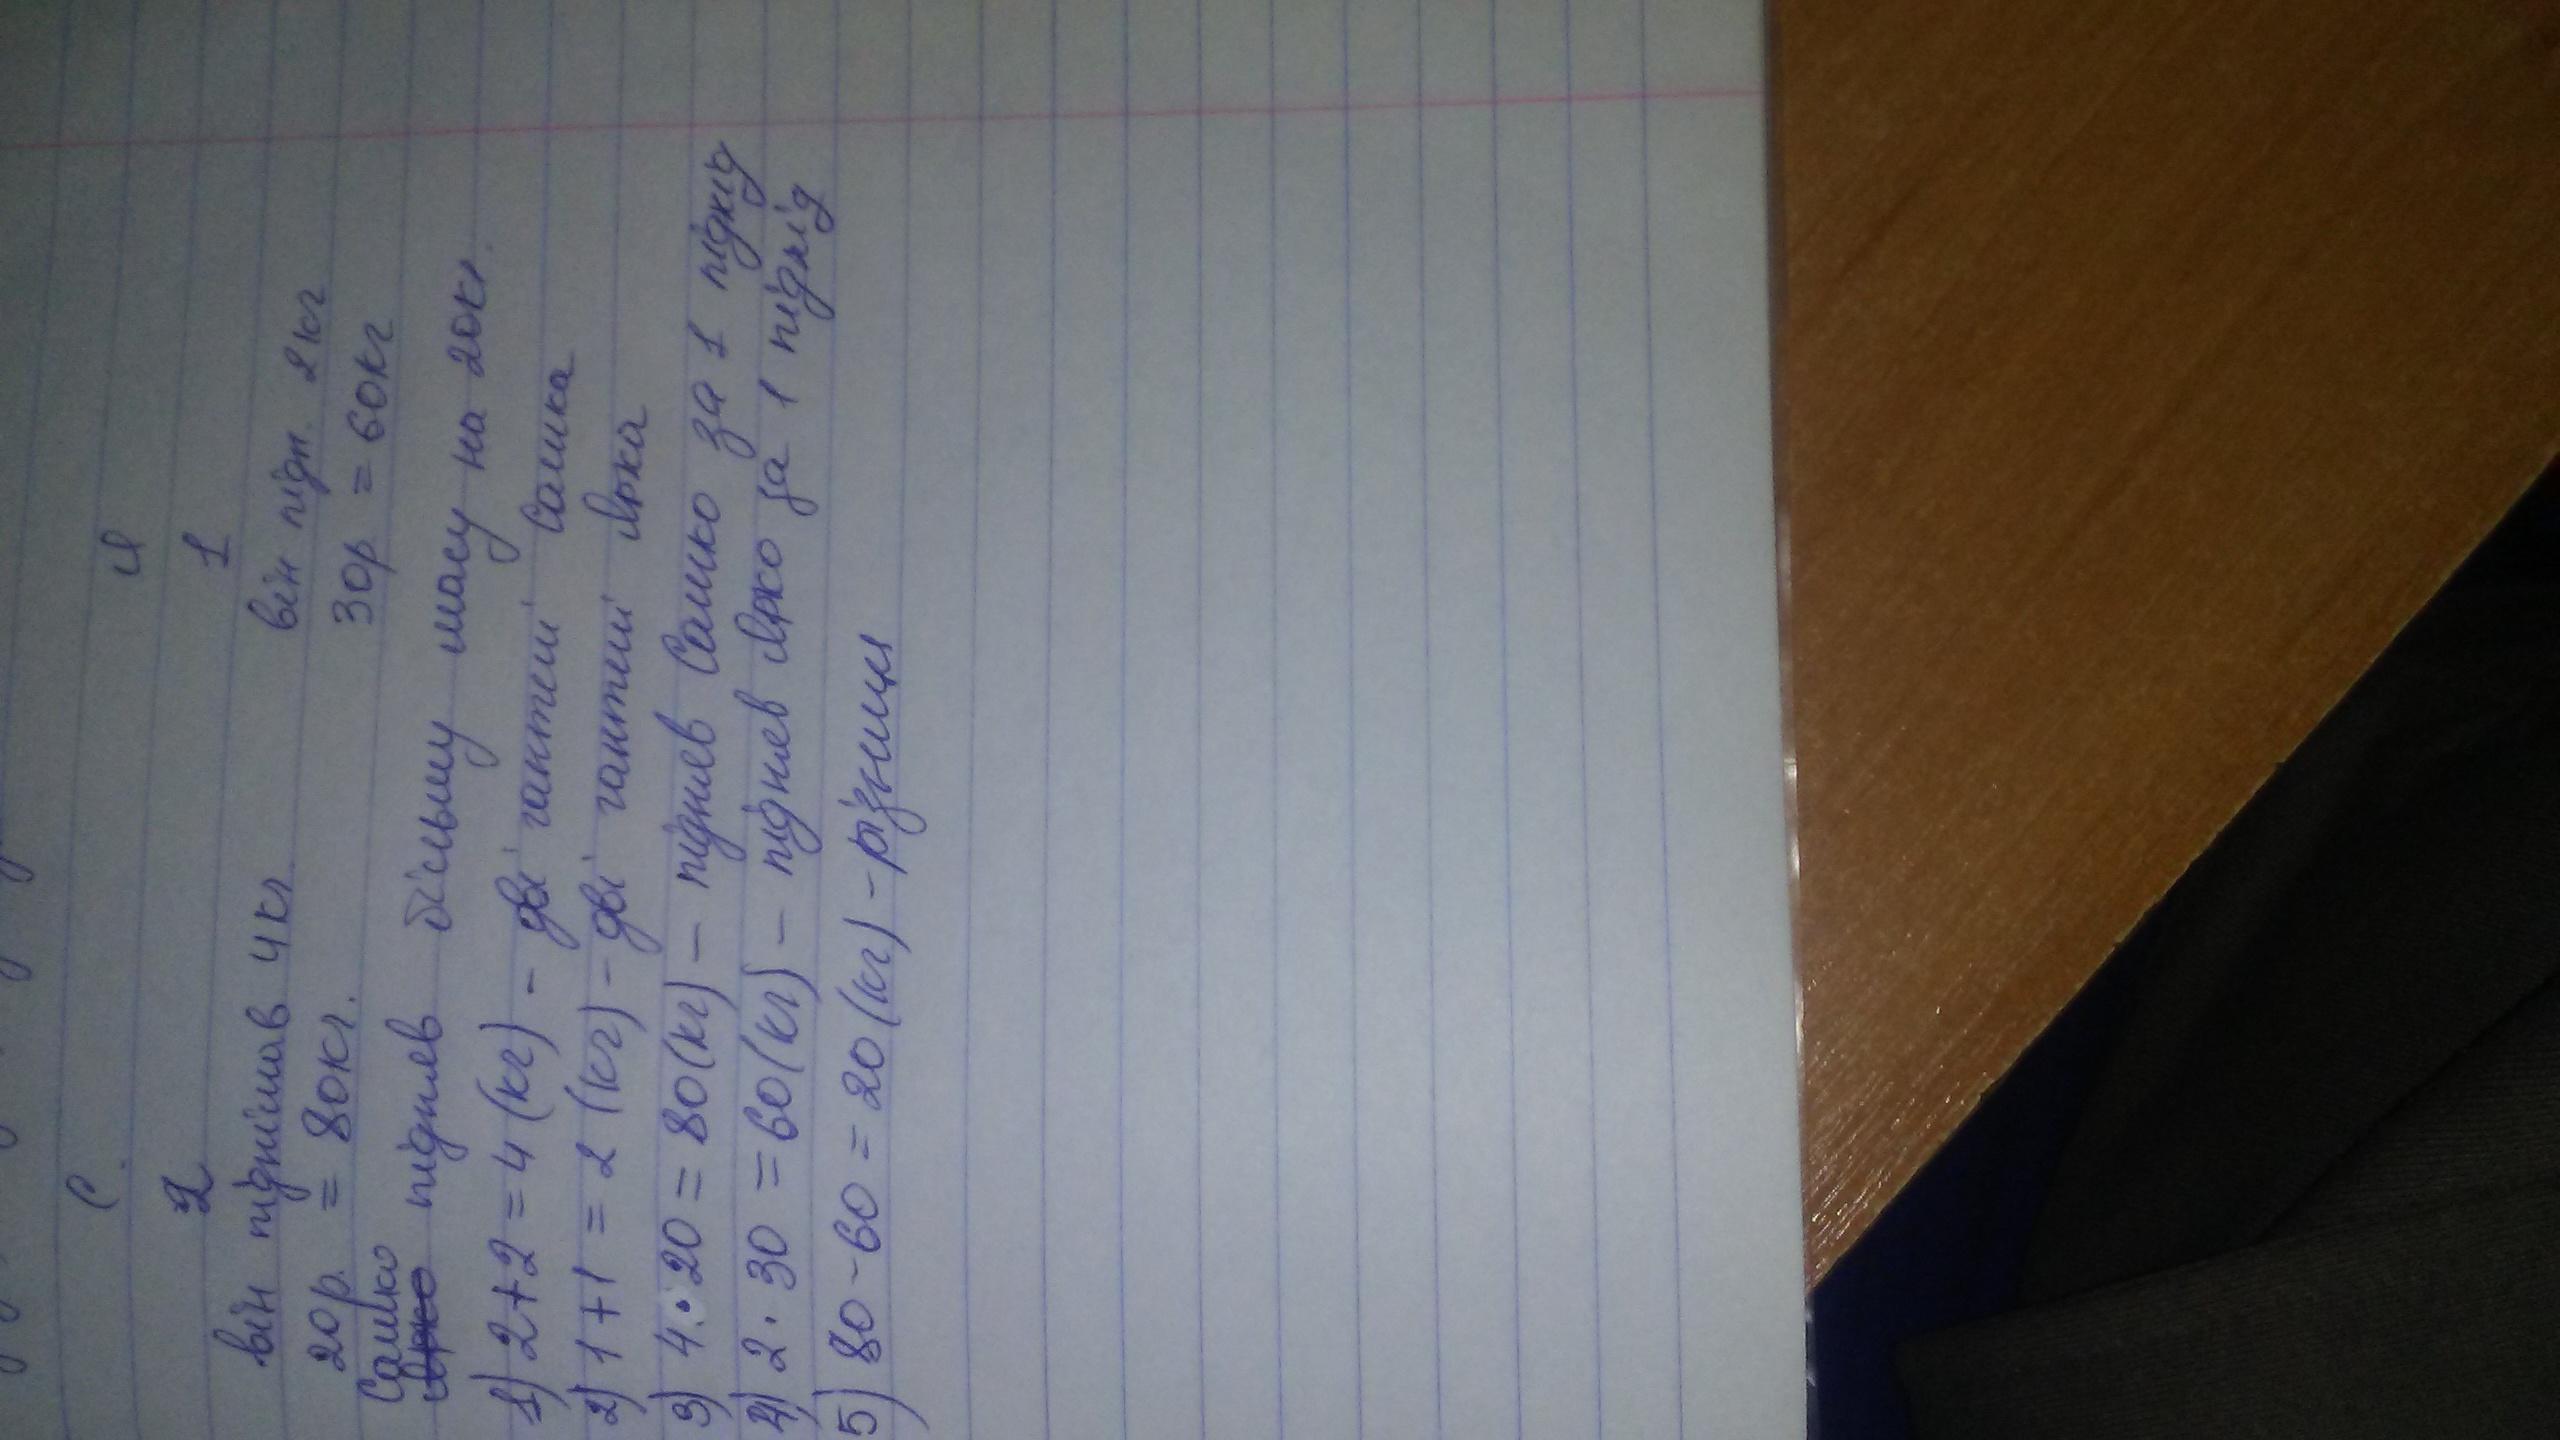 С. Я
2 1
він піднімав 4кг. він підн. 2кг
20р. = 80кг. 30р = 60кг
Сашко
Ярко підняв більшу масу на 20кг.
1) 2+2=4 (кг) - дві гантелі Сашка
2) 1+1=2 (кг) - дві гантелі Ярка
3) 4·20=80(кг) - підняв Сашко за 1 підхід
4) 2·30=60(кг) - підняв Ярко за 1 підхід
5) 80-60=20(кг) - різниця